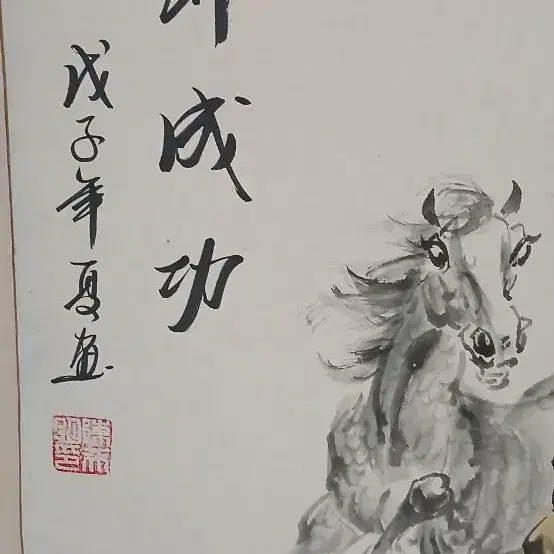 成功
戊子年夏画